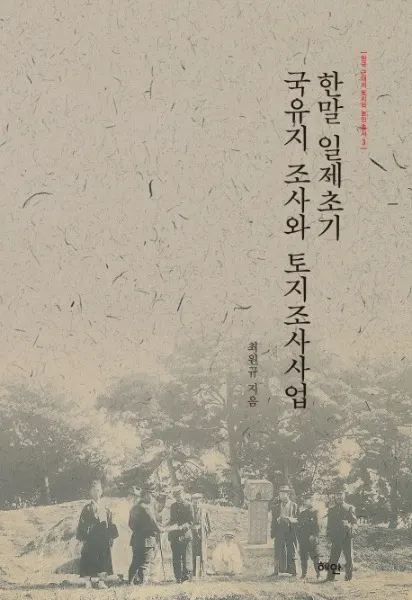 한말 일제초기
국유지 조사와 토지조사사업
최원규 지음
혜안